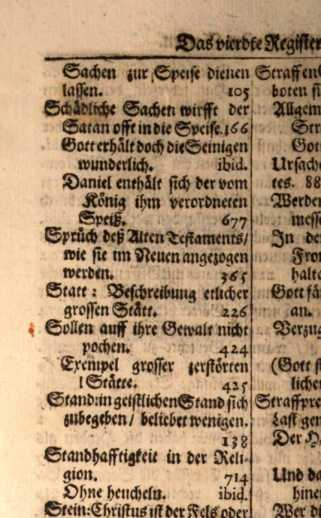 Das vierdte Register
Sachen zur Speise dienen
lassen. 105
Schädliche Sachen wirfft der
Satan offt in die Speise. 166
Gott erhält doch die Seinigen
wunderlich. ibid.
Daniel enthält sich der vom
König ihm verordneten
Speiß. 677
Sprüch deß Alten Testaments/
wie sie im Neuen angezogen
werden. 365
Statt: Beschreibung etlicher
grossen Stätt. 226
Sollen auff ihre Gewalt nicht
pochen. 424
Exempel grosser zerstörten
Stätte. 425
Stand: in geistlichen Stand sich
zubegeben/ beliebet wenigen.
138
Standhafftigkeit in der Reli-
gion. 714
Ohne heucheln. ibid.
Stein: Christus ist der Fels oder
Straffen
boten
Allgem
Gott
Ursach
tes. 88
Werden
In de
halt
Gott
an.
Verzug
(Gott
liche
Straffpre
Last
Der
Und da
hine
Wer di